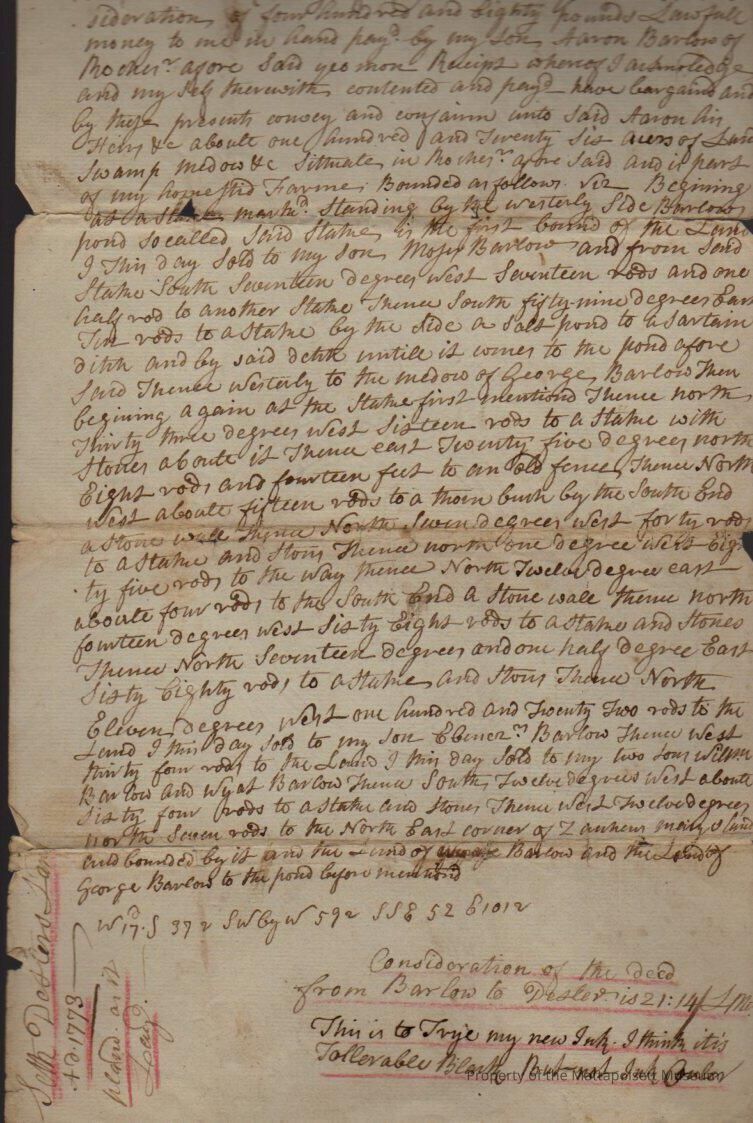 sideration of four hundred and Eighty pounds Lawfull
money to me in hand payd by my son Aaron Barlow of
Rochesr afore Said yeo mon Receipt whereof I acknoledge
and my Self therewith contented and payd have bargaind and
by these presents convey and confairm unto said Aaron his
Heirs &c aboute one hundred and Twenty Six acers of Land
Swamp medow &c Sittuate in Rochesr afore Said and is part
of my homested Farme Bounded as follows viz Begining
at a Stake markd Standing by the westerly Side Barlows
pond so called said Stake is the first bound of the Land
I This day Sold to my Son Moses Barlow and from Said
Stake South Seventeen degrees west Seventeen rods and one
half rod to another Stake Thence South fifty-nine degrees East
Tin rods to a Stake by the side a Salt pond to a sartain
dihh and by said dehh untill it comes to the pond afore
Said Thence westerly to the medow of George Barlow Then
begining again at the Stake first mentiond Thence north
Thirty three degrees west Sixteen rods to a Stake with
Stones aboute it Thence east Twenty five degrees north
Eight rods and fourteen feet to an old fence Thence North
West aboute fifteen rods to a thorn bush by the South End
a Stone wall Thence North Seven degrees west forty rods
to a Stake and Stons Thence north one degree west Eigh
ty five rods to the way thence North Twelve degree east
aboute four rods to the South End a Stone wall thence north
fourteen degrees west Sixty Eight rods to a Stake and Stones
Thence North Seventeen degrees and one half degree East
Sixty Eighty rods to a Stake and Stons Thence North
Eleven degrees west one hundred and Twenty Two rods to the
Land I this day sold to my son Ebenezr Barlow Thence West
thirty four rods to the Land I this day Sold to my two sons
Barlow and Wyat Barlow Thence South Twelve degrees west aboute
Sixty four rods to a Stake and Stones Thence West Twelve degrees
north Seven rods to the North East corner of land
and bounded by it and the Land of Barlow and the Land of
George Barlow to the pond before mentiond
Wd 17. S 37 2 SW by W 59 2 SSE 52 E 101 2
Consideration of the deed
from Barlow to is 21:14
This is to Trye my new Ink. I think it is
Tollerable Black But not Ink
Seth
AD. 1773
pland as it
Lays.
Property of the Mattapoisett Museum